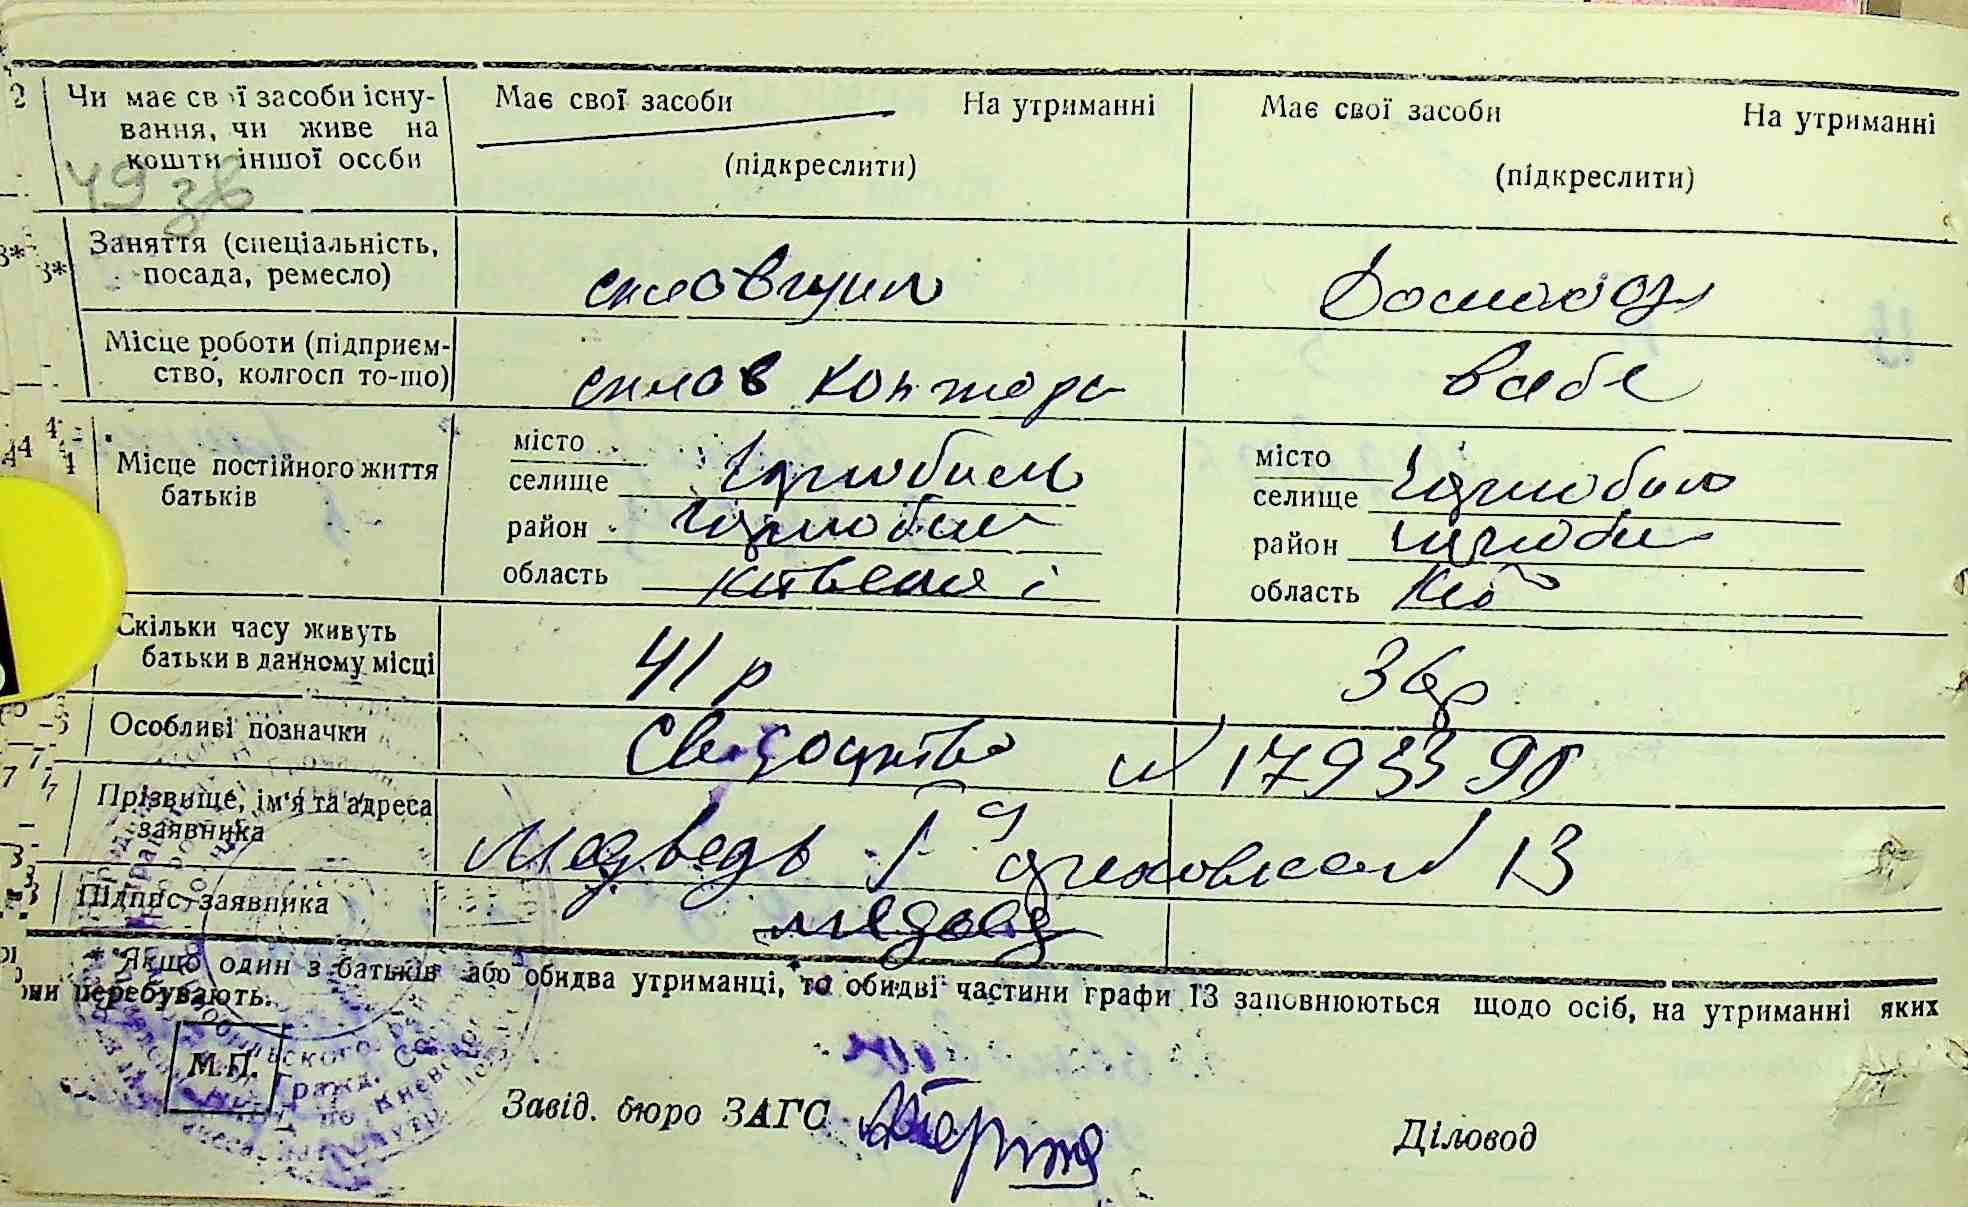 2 Чи має свої засоби існу- Має свої засоби На утриманні Має свої засоби На утриманні
вання, чи живе на
кошти іншої особи (підкреслити) (підкреслити)
49 зв
3* Заняття (спеціальність,
посада, ремесло) сплавщик Домохоз
Місце роботи (підприєм-
ство, колгосп то-що) сплав контора
4 Місце постійного життя
батьків
місто місто
селище Чорнобиль селище Чорнобиль
район Чорнобил район
область область Киів
Скільки часу живуть
батьки в данному місці 41 р 36 р
Особливі позначки Свидоцтво № 1793390
Прізвище, ім'я та адреса
заявника Медведь 13
Підпис заявника Медведь
* Якщо один з батьків або обидва утриманці, то обидві частини графи 13 заповнюються щодо осіб, на утриманні яких
они перебувають.
М.П.
Завід. бюро ЗАГС Діловод